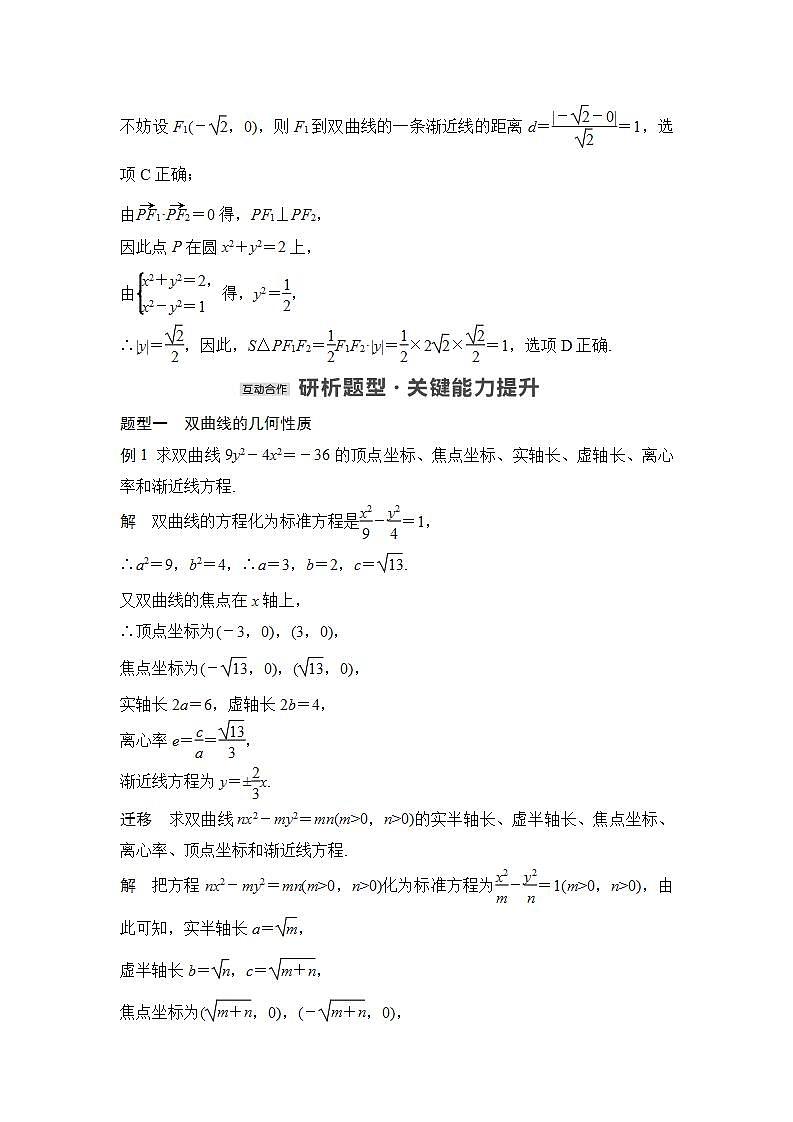 不妨设 F₁(-√2, 0),则 F₁到双曲线的一条渐近线的距离 d=|-√2-0|/√2=1,选
项 C 正确;
由PF₁·PF₂=0 得,PF₁⊥PF₂,
因此点 P 在圆 x2+y2=2 上,
由{x2+y2=2, x2-y2=1 得,y2=1/2,
∴|y|=√2/2,因此,S△PF₁F₂=1/2F₁F₂·|y|=1/2×2√2×√2/2=1,选项 D 正确.
互动合作 研析题型·关键能力提升
题型一 双曲线的几何性质
例 1 求双曲线 9y2-4x2=-36 的顶点坐标、焦点坐标、实轴长、虚轴长、离心
率和渐近线方程.
解 双曲线的方程化为标准方程是x2/9-y2/4=1,
∴a2=9,b2=4,∴a=3,b=2,c=√13.
又双曲线的焦点在 x 轴上,
∴顶点坐标为(-3,0),(3,0),
焦点坐标为(-√13,0),(√13,0),
实轴长 2a=6,虚轴长 2b=4,
离心率 e=c/a=√13/3,
渐近线方程为 y=±2/3x.
迁移 求双曲线 nx2-my2=mn(m>0,n>0)的实半轴长、虚半轴长、焦点坐标、
离心率、顶点坐标和渐近线方程.
解 把方程 nx2-my2=mn(m>0,n>0)化为标准方程为x2/m-y2/n=1(m>0,n>0),由
此可知,实半轴长 a=√m,
虚半轴长 b=√n,c=√m+n,
焦点坐标为(√m+n,0),(-√m+n,0),